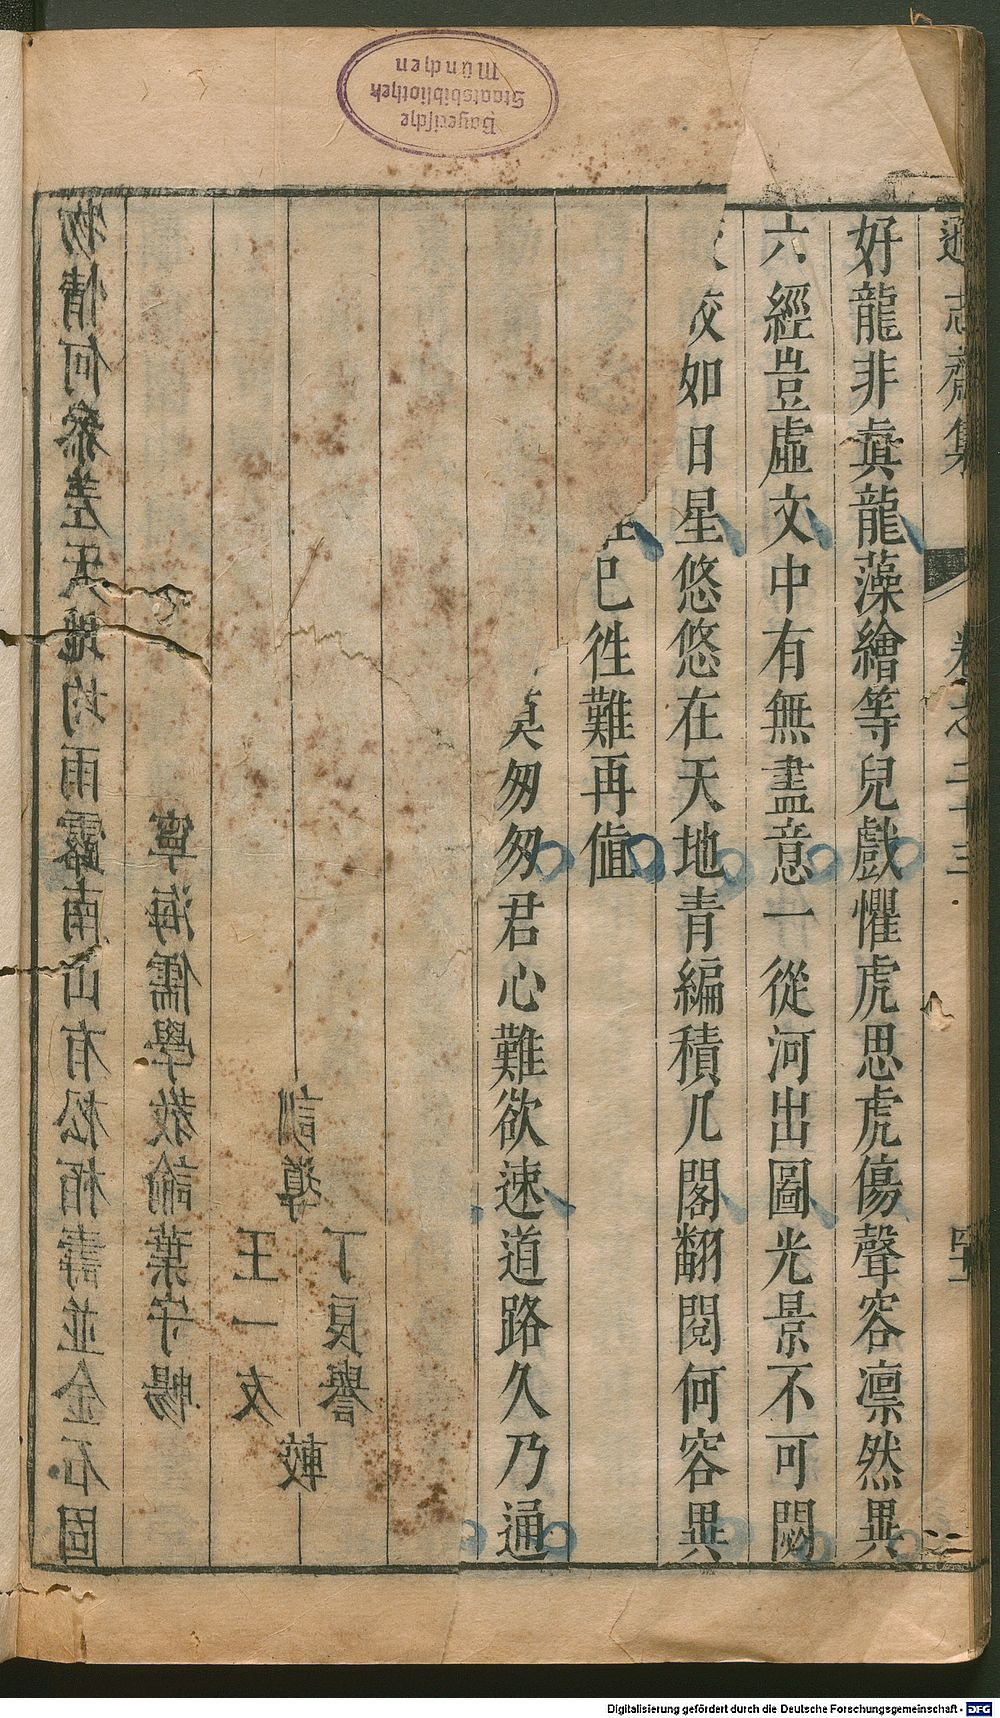 Bayerische
Staatsbibliothek
München
志齋集 卷之二十三
好龍非眞龍藻繪等兒戲懼虎思虎傷聲容凛然異
六經豈虛文中有無盡意一從河出圖光景不可閟
皎如日星悠悠在天地青編積几閣翻閱何容異
已徃難再値
莫匆匆君心難欲速道路久乃通
丁良譽
訓導 較
王一友
寧海儒學教諭葉守暢
物情何叅差天地均雨露南山有松栢壽並金石固
Digitalisierung gefördert durch die Deutsche Forschungsgemeinschaft - DFG